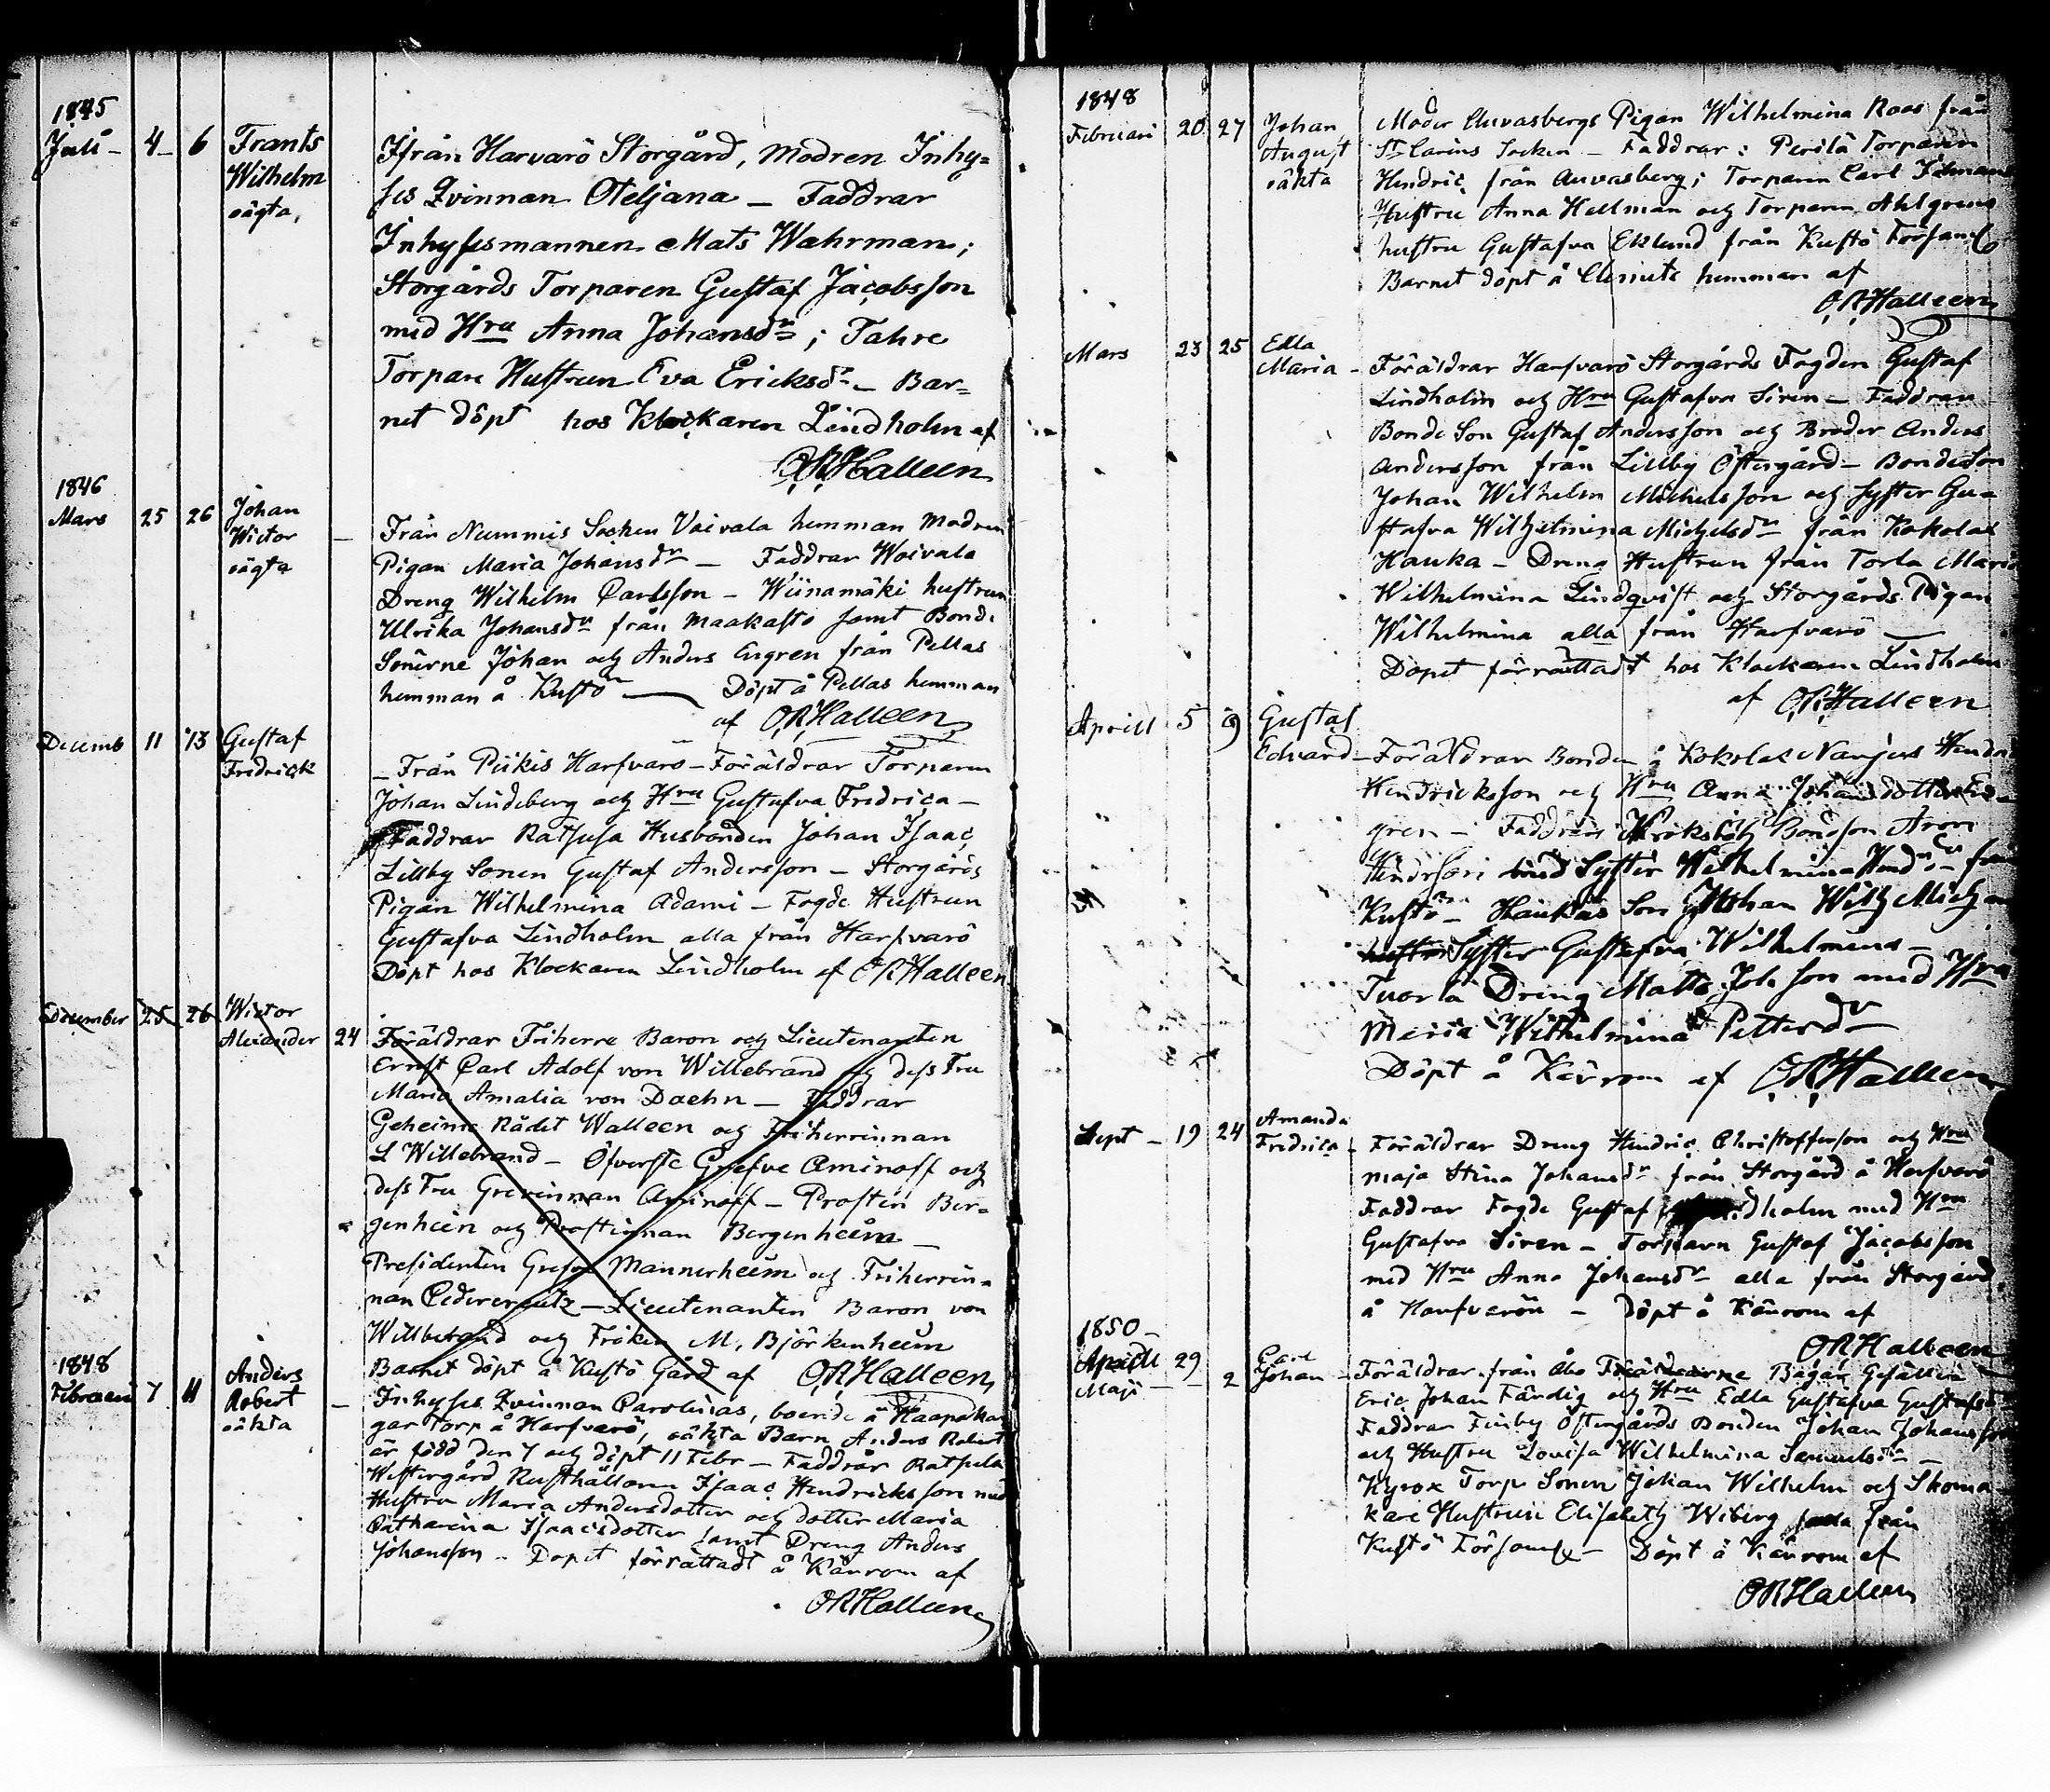 1845
Juli - 4 - 6 Frants
Wilhelm
oägta,
Ifrån Harvarö Storgård, Modren Inhy=
ses Qvinnan Oteljana - Faddrar
Inhysesmannen Mats Wahrman;
Storgårds Torparen Gustaf Jacobsson
med Hru Anna Johansdr; Tahre
Torpare Hustrun Eva Ericksdr - Bar=
net döpt hos Klockaren Lindholm af
ORHalleen
1846
Mars 25 26 Johan
Wictor
oägta
Från Nummis Socken Vaivala hemman Modren
Pigan Maria Johansdr - Faddrar Woivala
Dreng Wilhelm Carlsson - Wiinamäki hustrun
Ulrika Johansdr från Maakasto samt Bonde
Sönerne Johan och Anders Engren från Pellas
hemman å Kustö - Döpt å Pellas hemman
af ORHalleen
Decemb 11 13 Gustaf
Fredrick
- Från Piikis Harfvarö - Föräldrar Torparen
Johan Lindeberg och Hru Gustafva Fredrica -
Faddrar Ratsusa Husbonden Johan Isaac
Lillby Sonen Gustaf Andersson - Storgårds
Pigan Wilhelmina Adami - Fogde Hustrun
Gustafva Lindholm alla från Harfvarö
Döpt hos Klockaren Lindholm af ORHalleen
December 25 26 Wictor
Alexander 24
Föräldrar Friherre Baron och Lieutenanten
Ernst Carl Adolf von Willebrand och dess Fru
Maria Amalia von Daehn - Faddrar
Geheime Rådet Walleen och Friherrinnan
L Willebrand - Öfverste Grefve Aminoff och
dess Fru Grevinnan Aminoff - Prosten Ber=
genheim och Prostinnan Bergenheim -
Presidenten Grefve Mannerheim och Friherrin=
nan Cedercreutz - Lieutenanten Baron von
Willebrand och Fröken M. Björkenheim
Barnet döpt å Kustö Gård af ORHalleen
1848
Februari 7 11 Anders
Robert
oäkta
- Inhyses Qvinnan Carolinas, boende å Haapakan
gar Torp å Harfvarö, oäkta Barn Anders Robert
är född den 7 och döpt 11 Febr - Faddrar Ratsula
Westergård Rusthållaren Isaac Hendricksson med
Hustru Maria Andersdotter och dotter Maria
Catharina Isaacsdotter samt Dreng Anders
Johansson - Dopet förrättadt å Kärrom af
ORHalleen
1848
Februari 20 27 Johan
August
oäkta
Moder Auvasbergs Pigan Wilhelmina Roos från
St Carins Socken - Faddrar: Perilä Torparen
Hendric från Auvasberg; Torparen Carl
Hustru Anna Hellman och Torparen Ahlgrens
hustru Gustafva Eklund från Kustö Församl
Barnet döpt å hemman af
ORHalleen
Mars 23 25 Edla
Maria - Föräldrar Harfvarö Storgårds Fogden Gustaf
Lindholm och Hru Gustafva Siren - Faddrar
Bonde Son Gustaf Andersson och Broder Anders
Andersson från Lillby Östergård - Bondeson
Johan Wilhelm Michelsson och syster Gu=
stafva Wilhelmina Michelsdr från Kokolax
Hauka - Dreng Hustrun från Torla Maria
Wilhelmina Lindqvist och Storgårds Pigan
Wilhelmina alla från Harfvarö
Dopet förrättadt hos Klockaren Lindholm
af ORHalleen
Aprill 5 9 Gustaf
Edvard - Föräldrar Bonden å Kokolax Nanjus
Hendricksson och Hru Anna Johansdotter
gren - Faddrar Krokskäls Bondson Aron
Hindrsson med Syster Wilhelmina Hendsdr från
Kustö - Haukas Son Johan Wilh Mich
Syster Gustafva Wilhelmina -
Tuorla Dreng Matts Johsson med Hru
Maria Wilhelmina Pettersdr
Döpt å Kärrom af ORHalleen
Sept - 19 24 Amanda
Fredrica - Föräldrar Dreng Hendric Christoffersson och Hru
Maja Stina Johansdr från Storgård å Harfvarö
Faddrar Fogde Gustaf Lindholm med Hru
Gustafva Siren - Torparn Gustaf Jacobsson
med Hru Anna Johansdr alla från Storgård
å Harfvarön - Döpt å Kärrom af
ORHalleen
1850 -
Aprill 29
Maji - 2 Carl
Johan - Föräldrar från Åbo Gesällen
Eric Johan Färdig och Hru Edla Gustafva Gustafsdr
Faddrar Finby Östergårds Bonden Johan Johansson
och Hustru Lovisa Wilhelmina Samuelsdr -
Kyrox Torp Sonen Johan Wilhelm och Skoma
kare Hustrun Elisabeth Wiberg från
Kustö Församl - Döpt å Kärrom af
ORHalleen